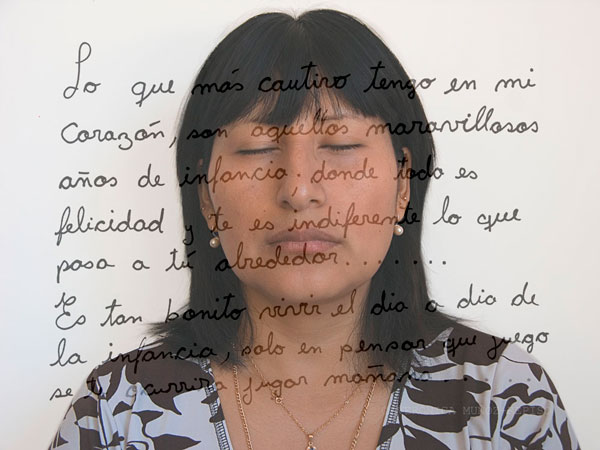 Lo que más cautivo tengo en mi
Corazón, son aquellos maravillosos
años de infancia. donde todo es
felicidad y te es indiferente lo que
pasa a tú alrededor........
Es tan bonito vivir el dia a dia de
la infancia, solo en pensar que juego
se te ocurrira jugar mañana...